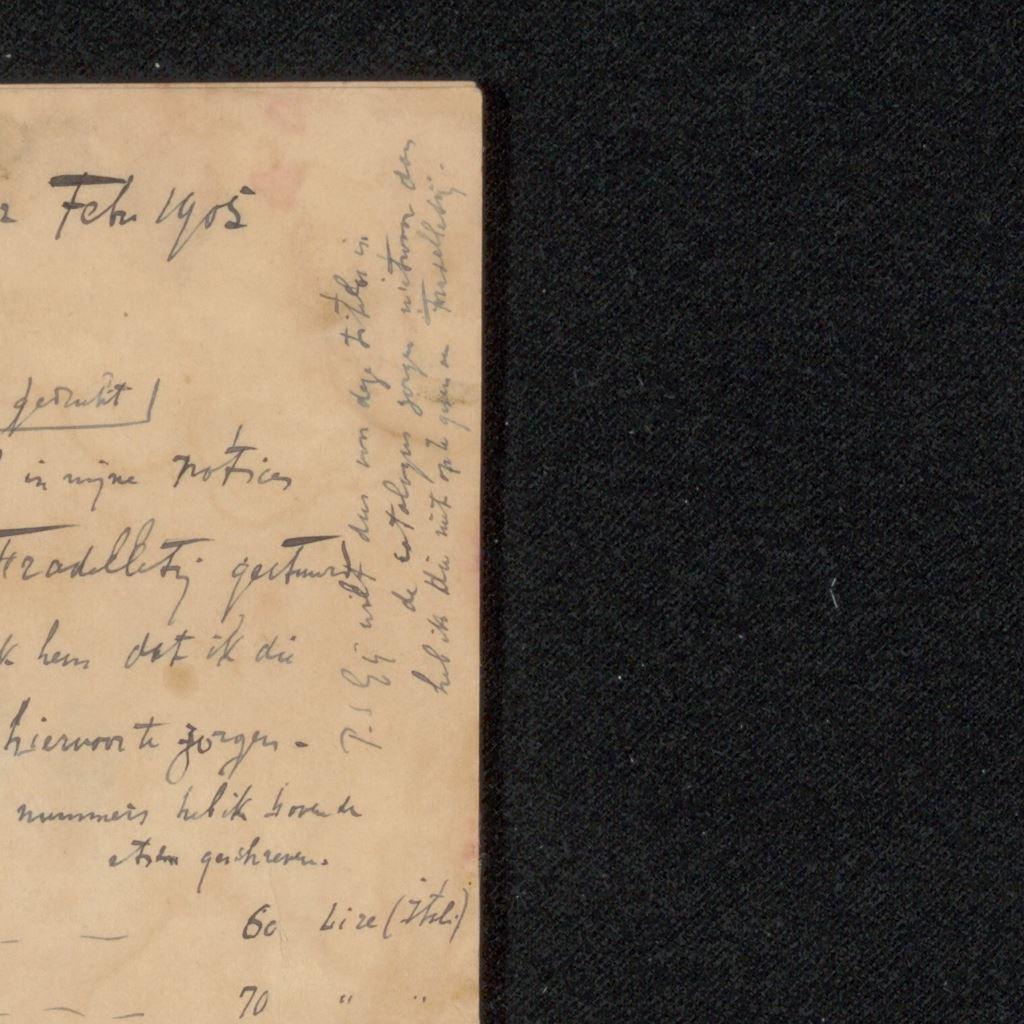 Febr 1905
gedrukt
in mijne notities
Fradelletij gestuurd
hem dat ik die
hiervoor te zorgen -
nummers heb ik boven de
etsen geschreven.
60 Lire (Ital.)
70 " "
P.S. Gij wilt dus voor deze titels in
de catalogus zorgen niet voor den
heb ik die niet op te geven en Fradelletij.